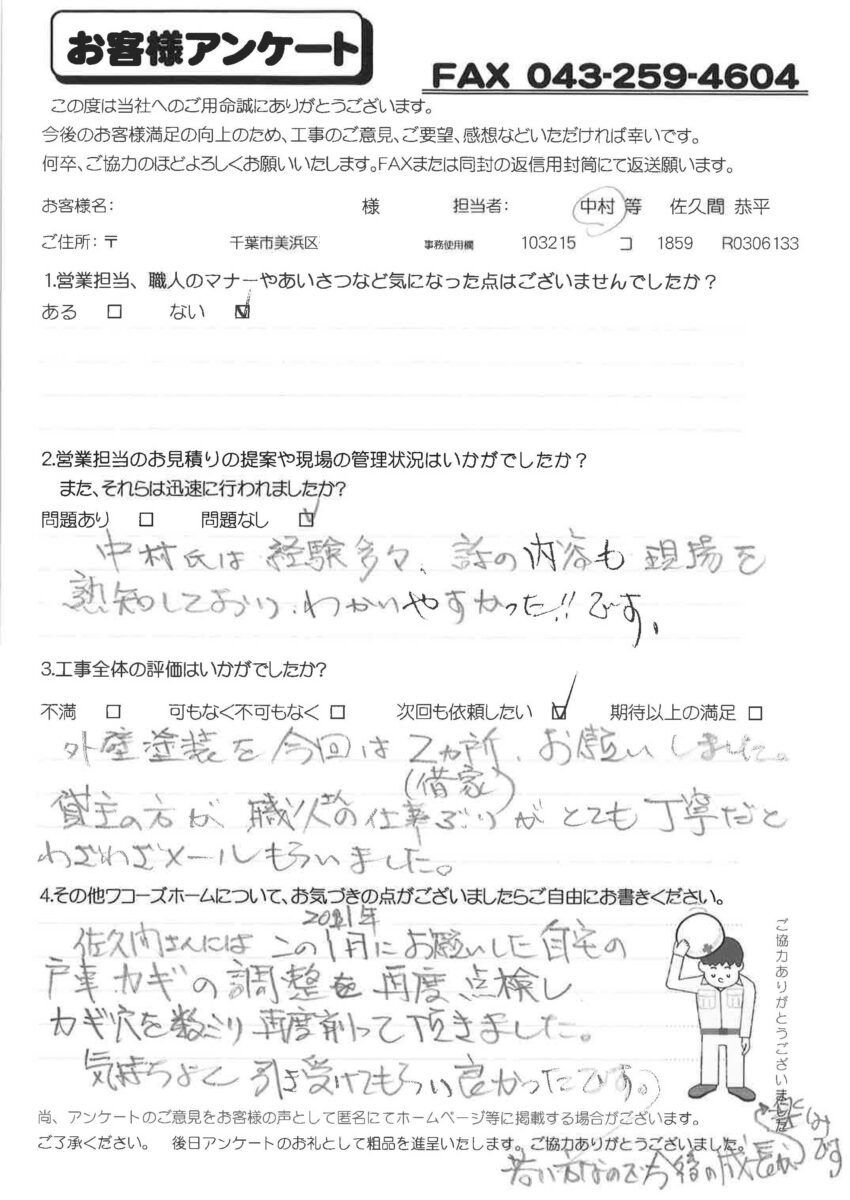 お客様アンケート
FAX 043-259-4604
この度は当社へのご用命誠にありがとうございます。
今後のお客様満足の向上のため、工事のご意見、ご要望、感想などいただければ幸いです。
何卒、ご協力のほどよろしくお願いいたします。FAXまたは同封の返信用封筒にて返送願います。
お客様名: 様 担当者: 中村 等 佐久間 恭平
ご住所:〒 千葉市美浜区 事務使用欄 103215 コ 1859 R0306133
1.営業担当、職人のマナーやあいさつなど気になった点はございませんでしたか?
ある □ ない ☑
2.営業担当のお見積りの提案や現場の管理状況はいかがでしたか?
また、それらは迅速に行われましたか?
問題あり □ 問題なし ☑
中村氏は経験多々、話の内容も現場を
熟知しており、わかいやすかった!!です。
3.工事全体の評価はいかがでしたか?
不満 □ 可もなく不可もなく □ 次回も依頼したい ☑ 期待以上の満足 □
外壁塗装を今回は2カ所、お願いしました。
(借家)
貸主の方が職人さんの仕事ぶりがとても丁寧だと
わざわざメールもらいました。
4.その他ワコーズホームについて、お気づきの点がございましたらご自由にお書きください。
2021年
佐久間さんにはこの1月にお願いした自宅の
戸車カギの調整を再度点検し
カギ穴を数ミリ再度削って頂きました。
気持ちよく引き受けてもらい良かったです。
ご協力ありがとうございました
尚、アンケートのご意見をお客様の声として匿名にてホームページ等に掲載する場合がございます。
ご了承ください。 後日アンケートのお礼として粗品を進呈いたします。ご協力ありがとうございました。
若い方なので今後の成長が
楽しみ
です